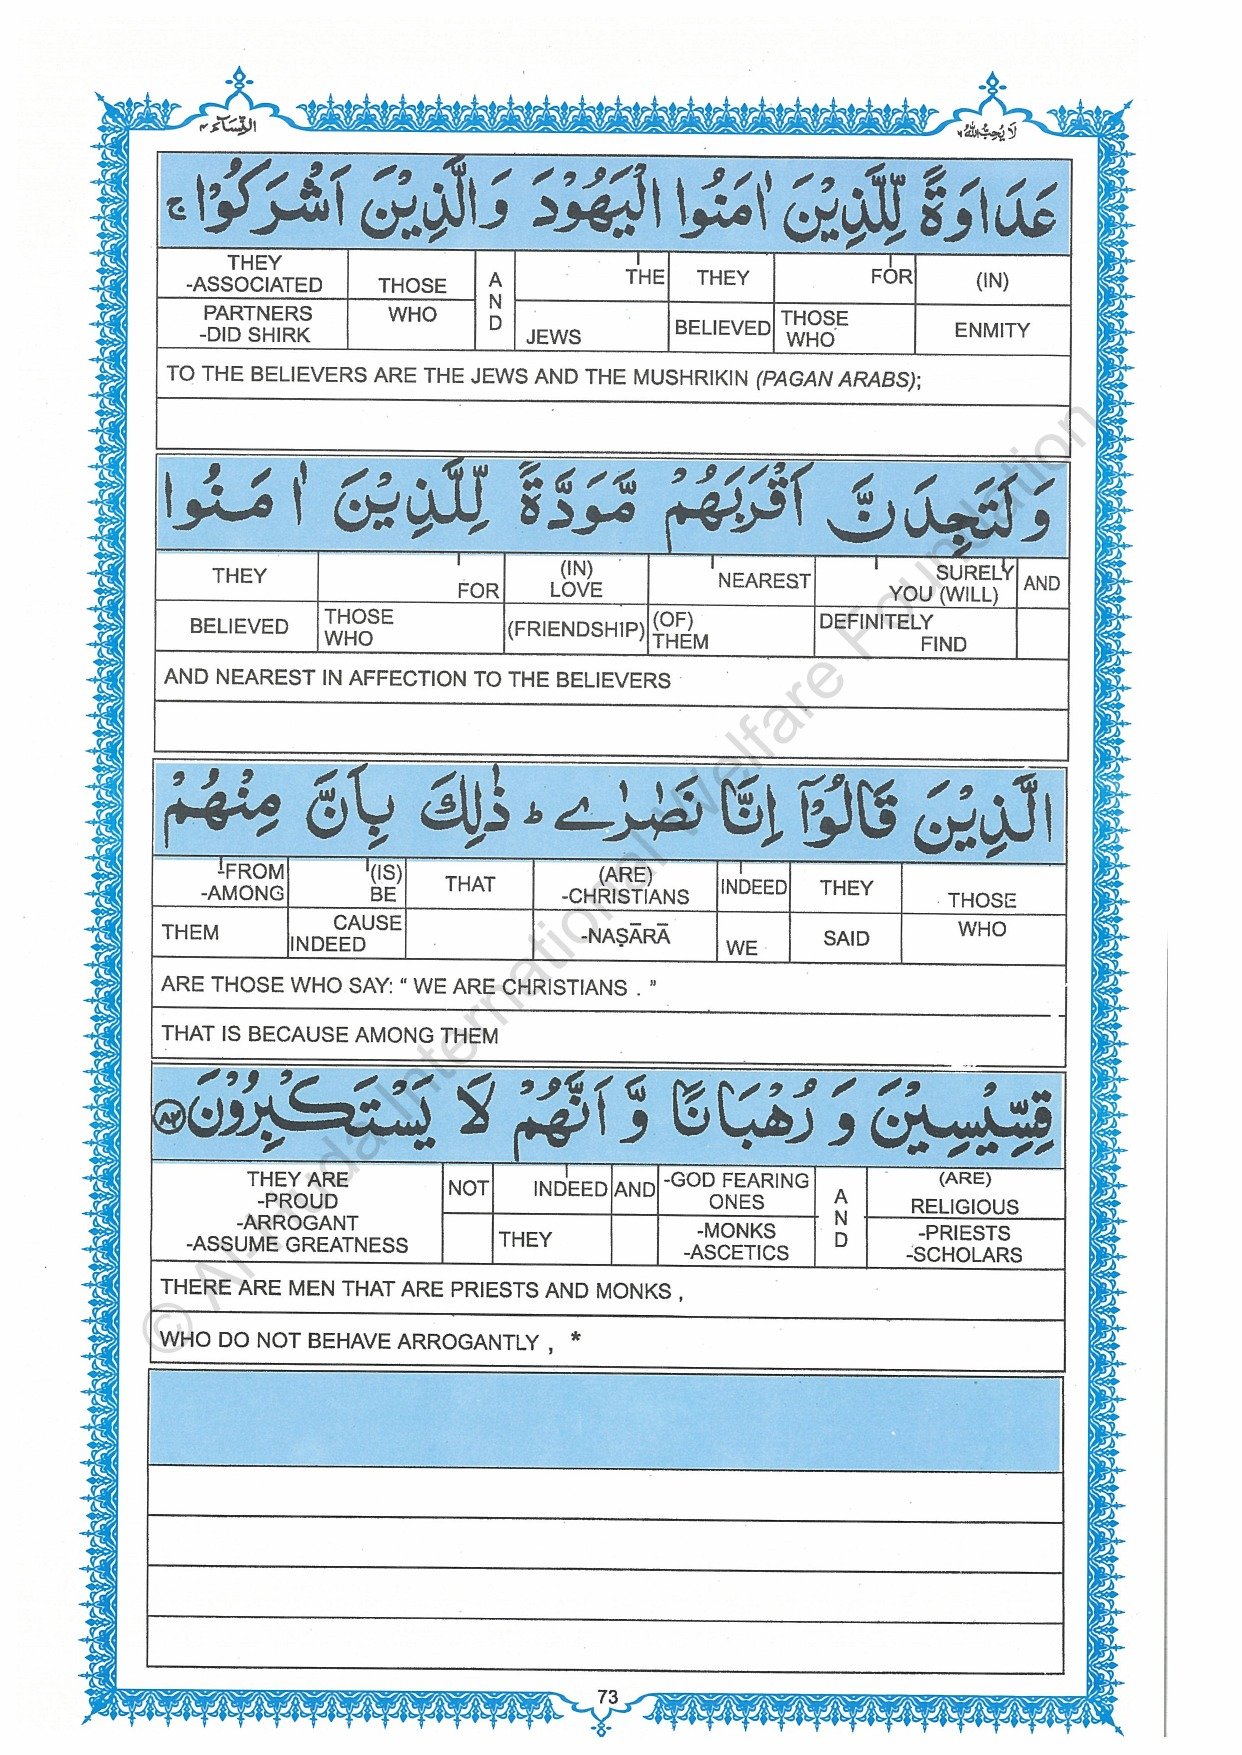 النِّسَآء ٤
لَا یُحِبُّ اللهُ ٦
عَدَاوَةً لِّلَّذِیْنَ اٰمَنُوا الْیَهُوْدَ وَالَّذِیْنَ اَشْرَكُوْا ۚ
THEY -ASSOCIATED THOSE A N D THE THEY FOR (IN)
PARTNERS -DID SHIRK WHO JEWS BELIEVED THOSE WHO ENMITY
TO THE BELIEVERS ARE THE JEWS AND THE MUSHRIKIN (PAGAN ARABS);
وَ لَتَجِدَنَّ اَقْرَبَهُمْ مَّوَدَّةً لِّلَّذِیْنَ اٰمَنُوا
THEY FOR (IN) LOVE NEAREST SURELY YOU (WILL) AND
BELIEVED THOSE WHO (FRIENDSHIP) (OF) THEM DEFINITELY FIND
AND NEAREST IN AFFECTION TO THE BELIEVERS
الَّذِیْنَ قَالُوْۤا اِنَّا نَصٰرٰے ؕ ذٰلِكَ بِاَنَّ مِنْهُمْ
-FROM -AMONG (IS) BE THAT (ARE) -CHRISTIANS INDEED THEY THOSE
THEM CAUSE INDEED -NAṢĀRĀ WE SAID WHO
ARE THOSE WHO SAY: “ WE ARE CHRISTIANS . ”
THAT IS BECAUSE AMONG THEM
قِسِّیْسِیْنَ وَ رُهْبَانًا وَّ اَنَّهُمْ لَا یَسْتَكْبِرُوْنَ ﴿۸۲﴾
THEY ARE -PROUD -ARROGANT -ASSUME GREATNESS NOT INDEED AND -GOD FEARING ONES A N D (ARE) RELIGIOUS
THEY -MONKS -ASCETICS -PRIESTS -SCHOLARS
THERE ARE MEN THAT ARE PRIESTS AND MONKS ,
WHO DO NOT BEHAVE ARROGANTLY , *
73
© Al-Huda International Welfare Foundation